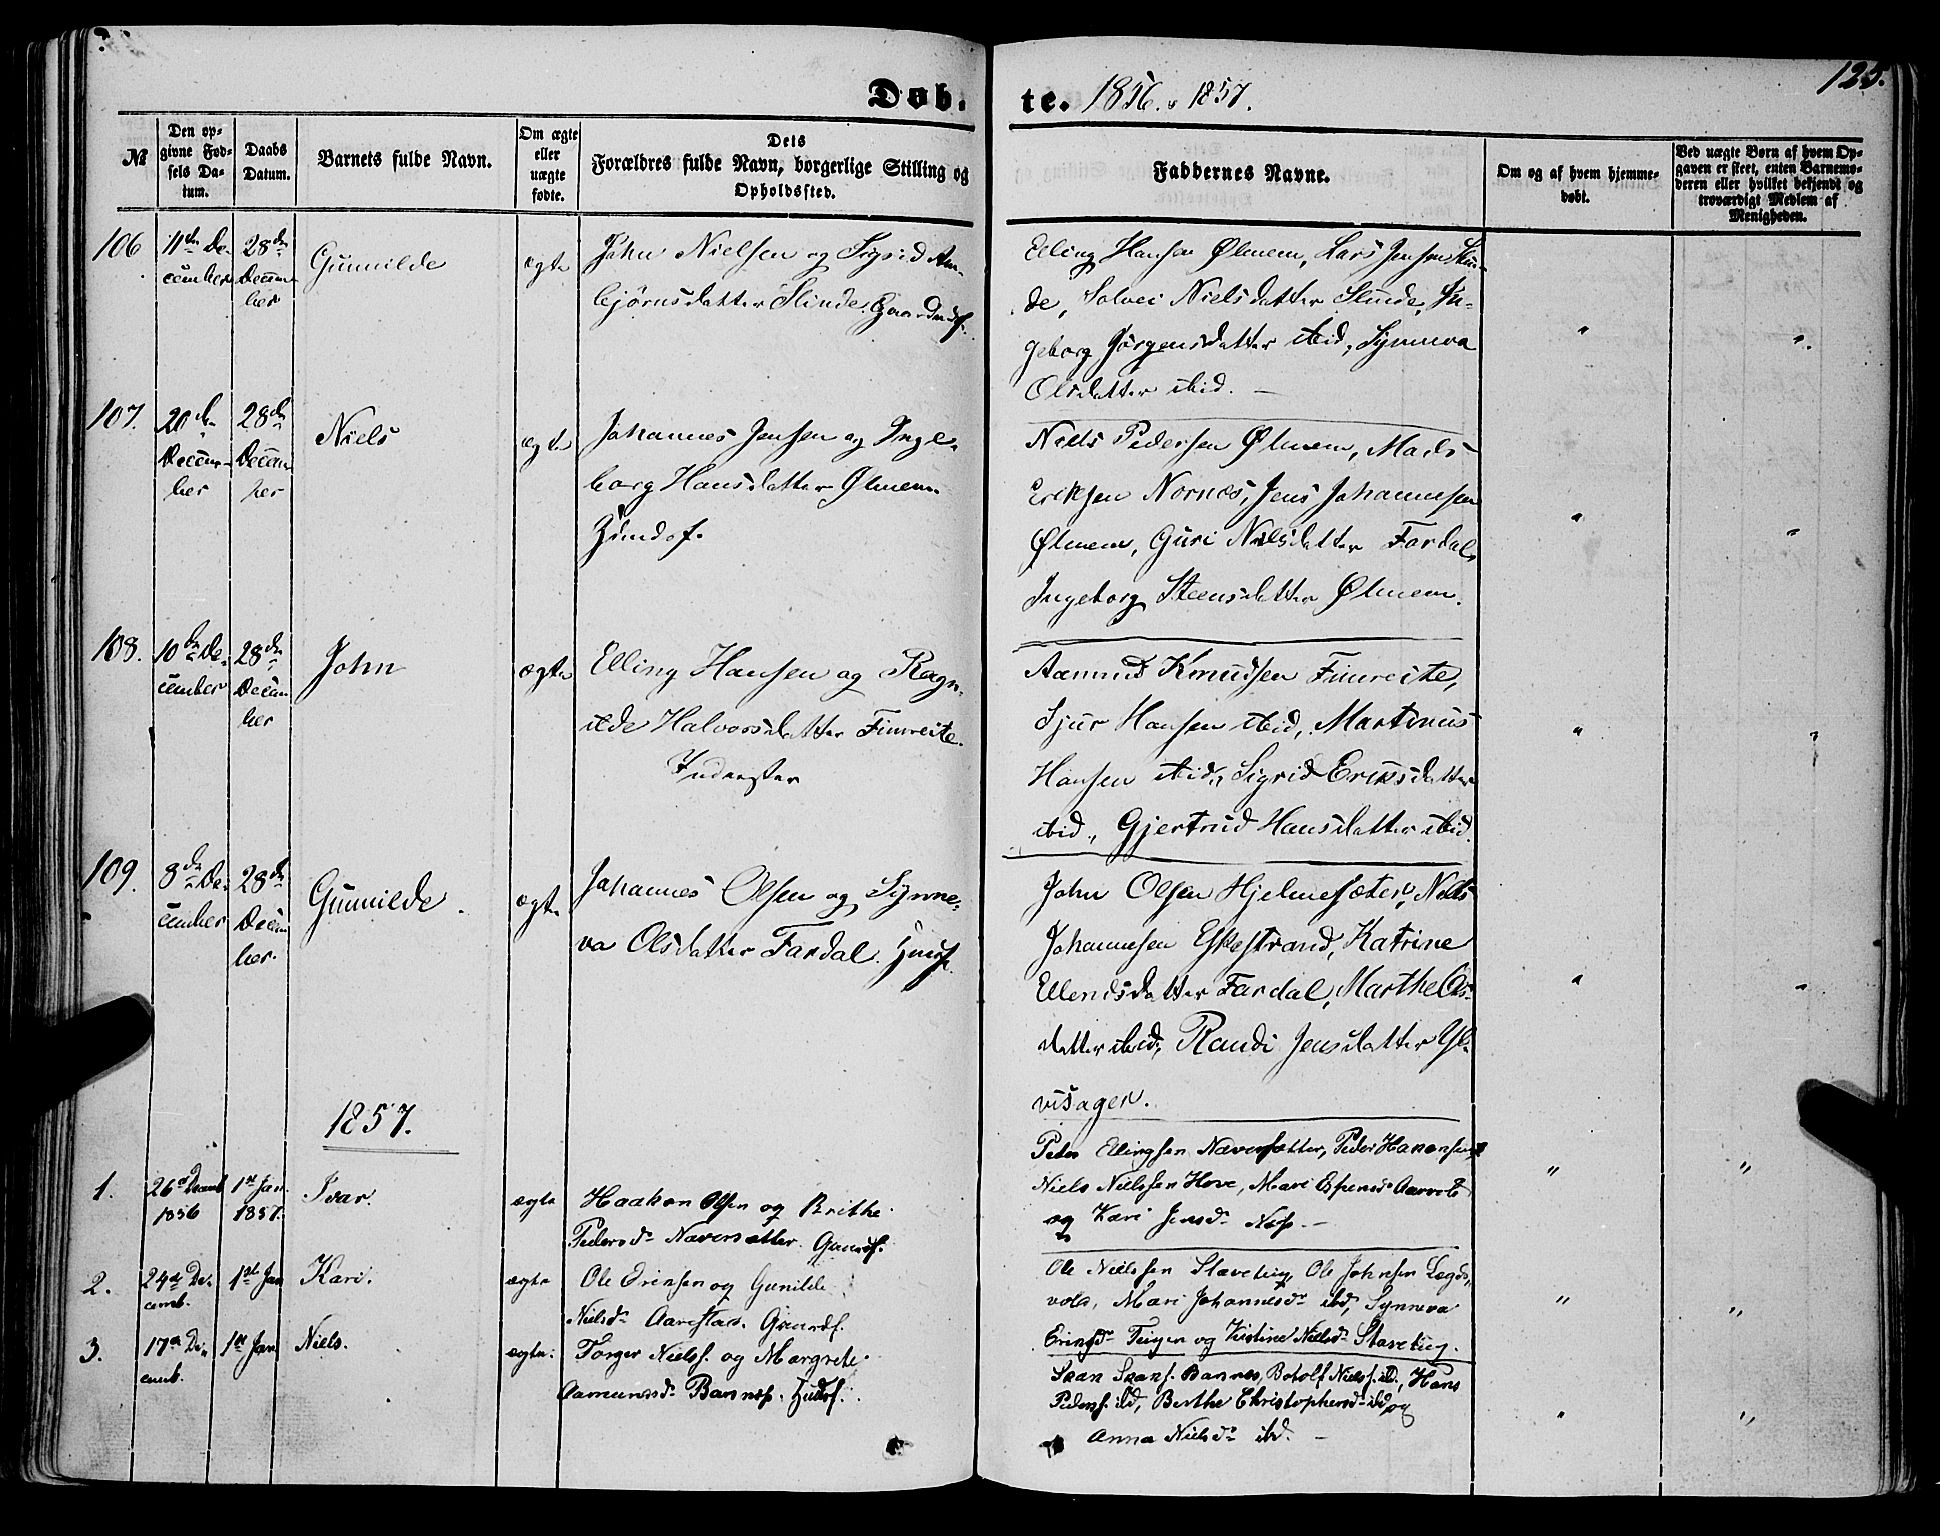 Døb. te. 1856. & 1857.
125.
№
Den opgivne Fødsels Datum.
Daabs Datum.
Barnets fulde Navn.
Om ægte eller uægte fødte.
Dets Forældres fulde Navn, borgerlige Stilling og Opholdssted.
Faddernes Navne.
Om og af hvem hjemmedøbt.
Ved uægte Børn af hvem Opgaven er skeet, enten Barnemoderen eller hvilket bekjendt og troværdigt Medlem af Menigheden.
106 11te De-
cember
28de
Decem-
ber
Gunnilde
ægte
John Nielsen og Sigrid Am-
bjørnsdatter Slinde.
Elling Hansen Ølmem, Lars Jensen Slin-
de, Solvei Nielsdatter Slinde, In-
geborg Jørgensdatter ibid, Synneva
Olsdatter ibid. —
107. 20de
Decem-
ber
28de
Decem-
ber
Niels
ægte
Johannes Jensen og Inge-
borg Hansdatter Ølmem.
Niels Pedersen Ølmem, Mads
Eriksen Nornes, Jens Johannesen
Ølmem, Guri Nielsdatter Fardal,
Ingeborg Steensdatter Ølmem.
108. 10de De-
cember
28de
Decem-
ber
John
ægte
Elling Hansen og Ragn-
ilde Halvorsdatter Fimreite.
Inderster
Aamund Knudsen Fimreite,
Sjur Hansen ibid, Martinus
Hansen ibid, Sigrid Eriksdatter
ibid, Gjertrud Hansdatter ibid.
109. 8de De-
cember
28de
Decem-
ber.
Gunnilde.
ægte
Johannes Olsen og Synne-
va Olsdatter Fardal.
John Olsen Hjelmesæter, Niels
Johannesen Eskestrand, Katrine
Ellendsdatter Fardal, Marthe Ols-
datter ibid, Randi Jensdatter Yl-
visager.
1857.
1. 26de Decemb
1856
1ste Jan.
1857.
Ivar.
ægte
Haakon Olsen og Brithe
Pedersdr Naversætter. Gaardf.
Peder Ellingsen Naversætter, Peder
Niels Nielssen Hove, Mari Espensdr
og Kari Jensdr Næss. —
2. 24de De-
cemb.
1ste Jan
Kari.
ægte
Ole Erinsen og Gunilde
Nielsdr Aarestad. Gaardf.
Ole Nielssen Stavetieg, Ole Johnsen Lægds-
vold, Mari Johannesdr ibd, Synneva
Erinsdr Teigen og Kristine Nielsdr Stavetieg.
3. 17de De-
cemb.
1ste Jan
Niels.
ægte.
Torger Nielss. og Margrete
Aamundsdr Barsnes.
Skan Skans. Barsnes, Botolf Nielss. ibd., Hans
Peders. ibd, Berthe Christophersdr ibd og
Anna Nielsdr ibd. —